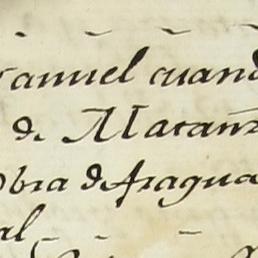 anuel cuand
de Matanz
Obra de Aragua
al